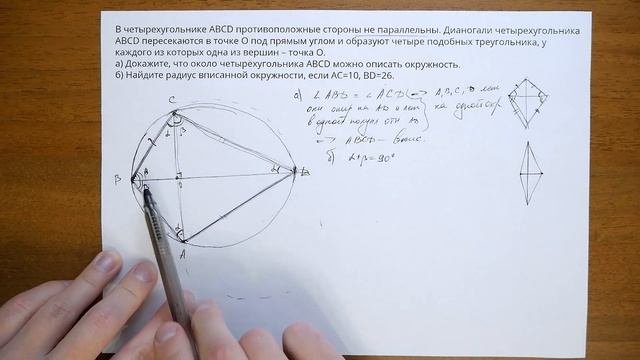 В четырехугольнике ABCD противоположные стороны не параллельны. Дианогали четырехугольника
ABCD пересекаются в точке O под прямым углом и образуют четыре подобных треугольника, у
каждого из которых одна из вершин – точка O.
а) Докажите, что около четырехугольника ABCD можно описать окружность.
б) Найдите радиус вписанной окружности, если AC=10, BD=26.
а) ∠ABD = ∠ACD ⇒ A, B, C, D леж
они опир на AD и леж на одной окр
в одной полупл отн AD
⇒ ABCD – впис.
б) α+β=90°
C
B
D
A